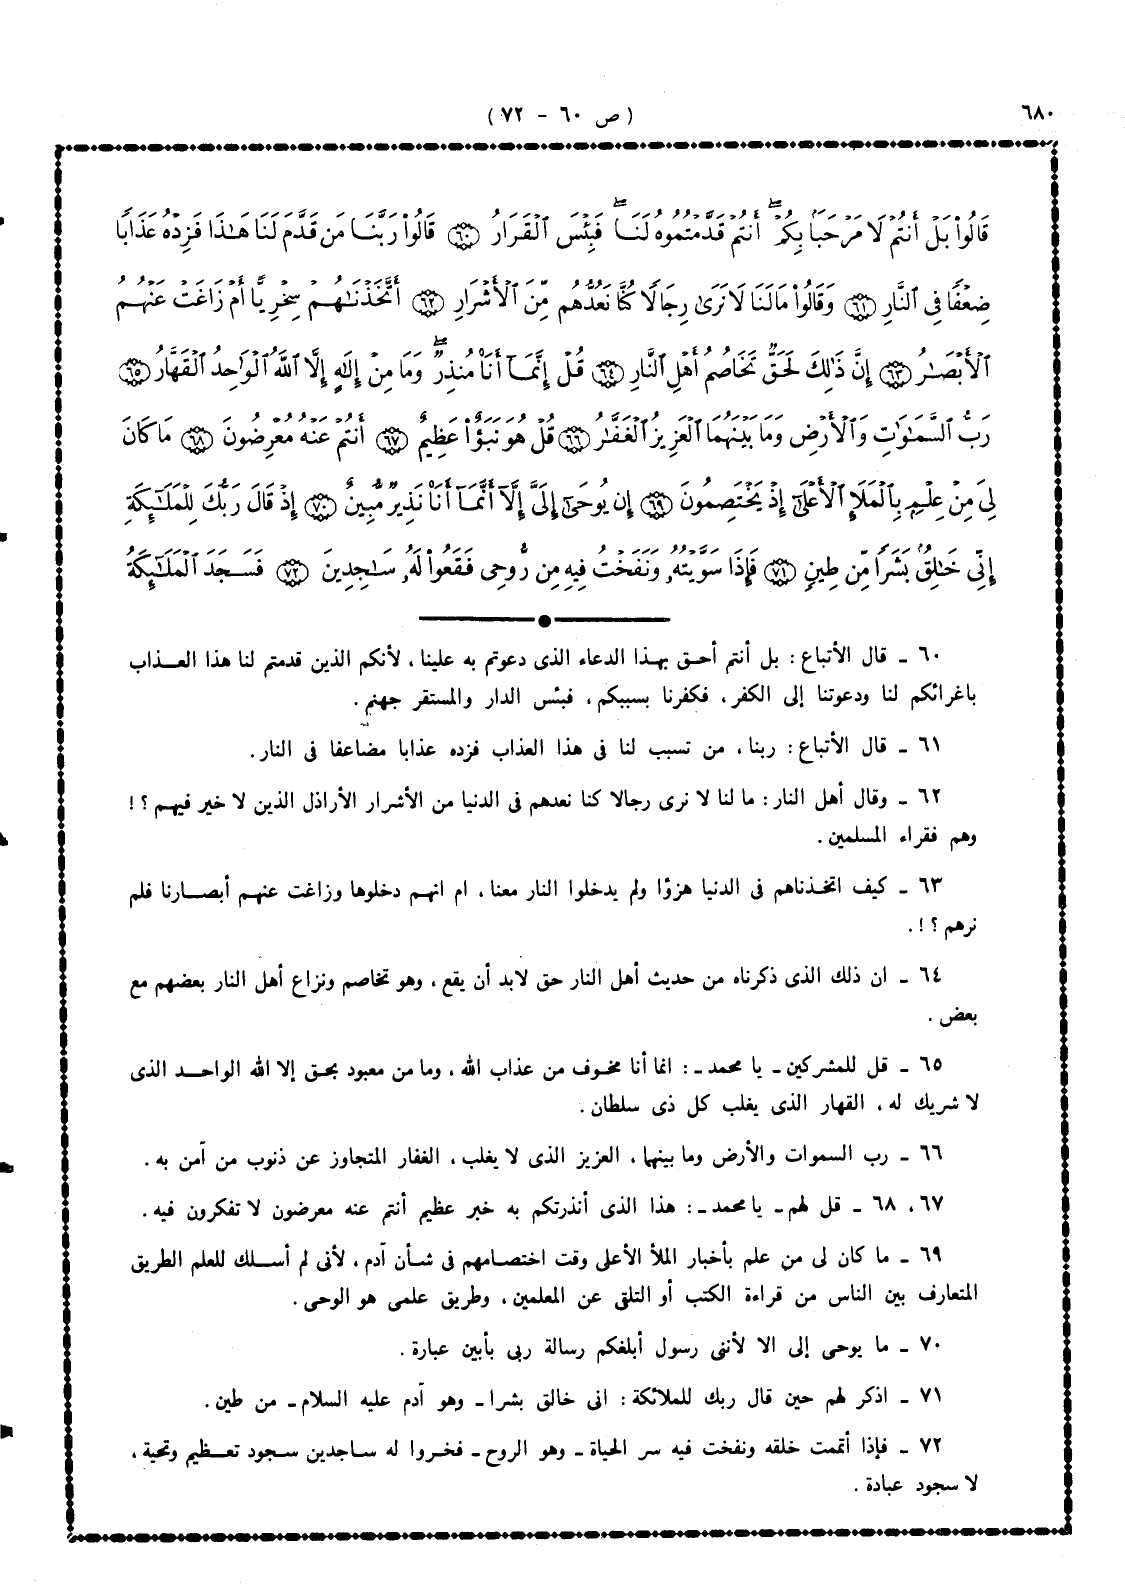 ٦٨٠
( ص ٦٠ - ٧٢ )
قَالُوا۟ بَلْ أَنتُمْ لَا مَرْحَبًۢا بِكُمْ ۖ أَنتُمْ قَدَّمْتُمُوهُ لَنَا ۖ فَبِئْسَ ٱلْقَرَارُ ۝٦٠ قَالُوا۟ رَبَّنَا مَن قَدَّمَ لَنَا هَـٰذَا فَزِدْهُ عَذَابًا
ضِعْفًا فِى ٱلنَّارِ ۝٦١ وَقَالُوا۟ مَا لَنَا لَا نَرَىٰ رِجَالًا كُنَّا نَعُدُّهُم مِّنَ ٱلْأَشْرَارِ ۝٦٢ أَتَّخَذْنَـٰهُمْ سِخْرِيًّا أَمْ زَاغَتْ عَنْهُمُ
ٱلْأَبْصَـٰرُ ۝٦٣ إِنَّ ذَٰلِكَ لَحَقٌّ تَخَاصُمُ أَهْلِ ٱلنَّارِ ۝٦٤ قُلْ إِنَّمَآ أَنَا۠ مُنذِرٌ ۖ وَمَا مِنْ إِلَـٰهٍ إِلَّا ٱللَّهُ ٱلْوَٰحِدُ ٱلْقَهَّارُ ۝٦٥
رَبُّ ٱلسَّمَـٰوَٰتِ وَٱلْأَرْضِ وَمَا بَيْنَهُمَا ٱلْعَزِيزُ ٱلْغَفَّـٰرُ ۝٦٦ قُلْ هُوَ نَبَؤٌا۟ عَظِيمٌ ۝٦٧ أَنتُمْ عَنْهُ مُعْرِضُونَ ۝٦٨ مَا كَانَ
لِىَ مِنْ عِلْمٍۭ بِٱلْمَلَإِ ٱلْأَعْلَىٰٓ إِذْ يَخْتَصِمُونَ ۝٦٩ إِن يُوحَىٰٓ إِلَىَّ إِلَّآ أَنَّمَآ أَنَا۠ نَذِيرٌ مُّبِينٌ ۝٧٠ إِذْ قَالَ رَبُّكَ لِلْمَلَـٰٓئِكَةِ
إِنِّى خَـٰلِقٌۢ بَشَرًا مِّن طِينٍ ۝٧١ فَإِذَا سَوَّيْتُهُۥ وَنَفَخْتُ فِيهِ مِن رُّوحِى فَقَعُوا۟ لَهُۥ سَـٰجِدِينَ ۝٧٢ فَسَجَدَ ٱلْمَلَـٰٓئِكَةُ
٦٠ ـ قال الأتباع : بل أنتم أحق بهذا الدعاء الذى دعوتم به علينا ، لأنكم الذين قدمتم لنا هذا العـذاب
باغرائكم لنا ودعوتنا إلى الكفر ، فكفرنا بسببكم ، فبئس الدار والمستقر جهنم .
٦١ ـ قال الأتباع : ربنا ، من تسبب لنا فى هذا العذاب فزده عذابا مضاعفا فى النار .
٦٢ ـ وقال أهل النار : ما لنا لا نرى رجالا كنا نعدهم فى الدنيا من الأشرار الأراذل الذين لا خير فيهم ؟ !
وهم فقراء المسلمين .
٦٣ ـ كيف اتخذناهم فى الدنيا هزؤا ولم يدخلوا النار معنا ، ام انهم دخلوها وزاغت عنهم أبصـارنا فلم
نرهم ؟ ! .
٦٤ ـ ان ذلك الذى ذكرناه من حديث أهل النار حق لابد أن يقع ، وهو تخاصم ونزاع أهل النار بعضهم مع
بعض .
٦٥ ـ قل للمشركين ـ يا محمد ـ : انما أنا مخوف من عذاب الله ، وما من معبود بحق إلا الله الواحـد الذى
لا شريك له ، القهار الذى يغلب كل ذى سلطان .
٦٦ ـ رب السموات والأرض وما بينهما ، العزيز الذى لا يغلب ، الغفار المتجاوز عن ذنوب من آمن به .
٦٧ ، ٦٨ ـ قل لهم ـ يا محمد ـ : هذا الذى أنذرتكم به خبر عظيم أنتم عنه معرضون لا تفكرون فيه .
٦٩ ـ ما كان لى من علم بأخبار الملأ الأعلى وقت اختصـامهم فى شـأن آدم ، لأنى لم أسـلك للعلم الطريق
المتعارف بين الناس من قراءة الكتب أو التلقى عن المعلمين ، وطريق علمى هو الوحى .
٧٠ ـ ما يوحى إلى الا لأننى رسول أبلغكم رسالة ربى بأبين عبارة .
٧١ ـ اذكر لهم حين قال ربك للملائكة : انى خالق بشرا ـ وهو آدم عليه السلام ـ من طين .
٧٢ ـ فإذا أتممت خلقه ونفخت فيه سر الحياة ـ وهو الروح ـ فخروا له سـاجدين سـجود تعـظيم وتحية ،
لا سجود عبادة .